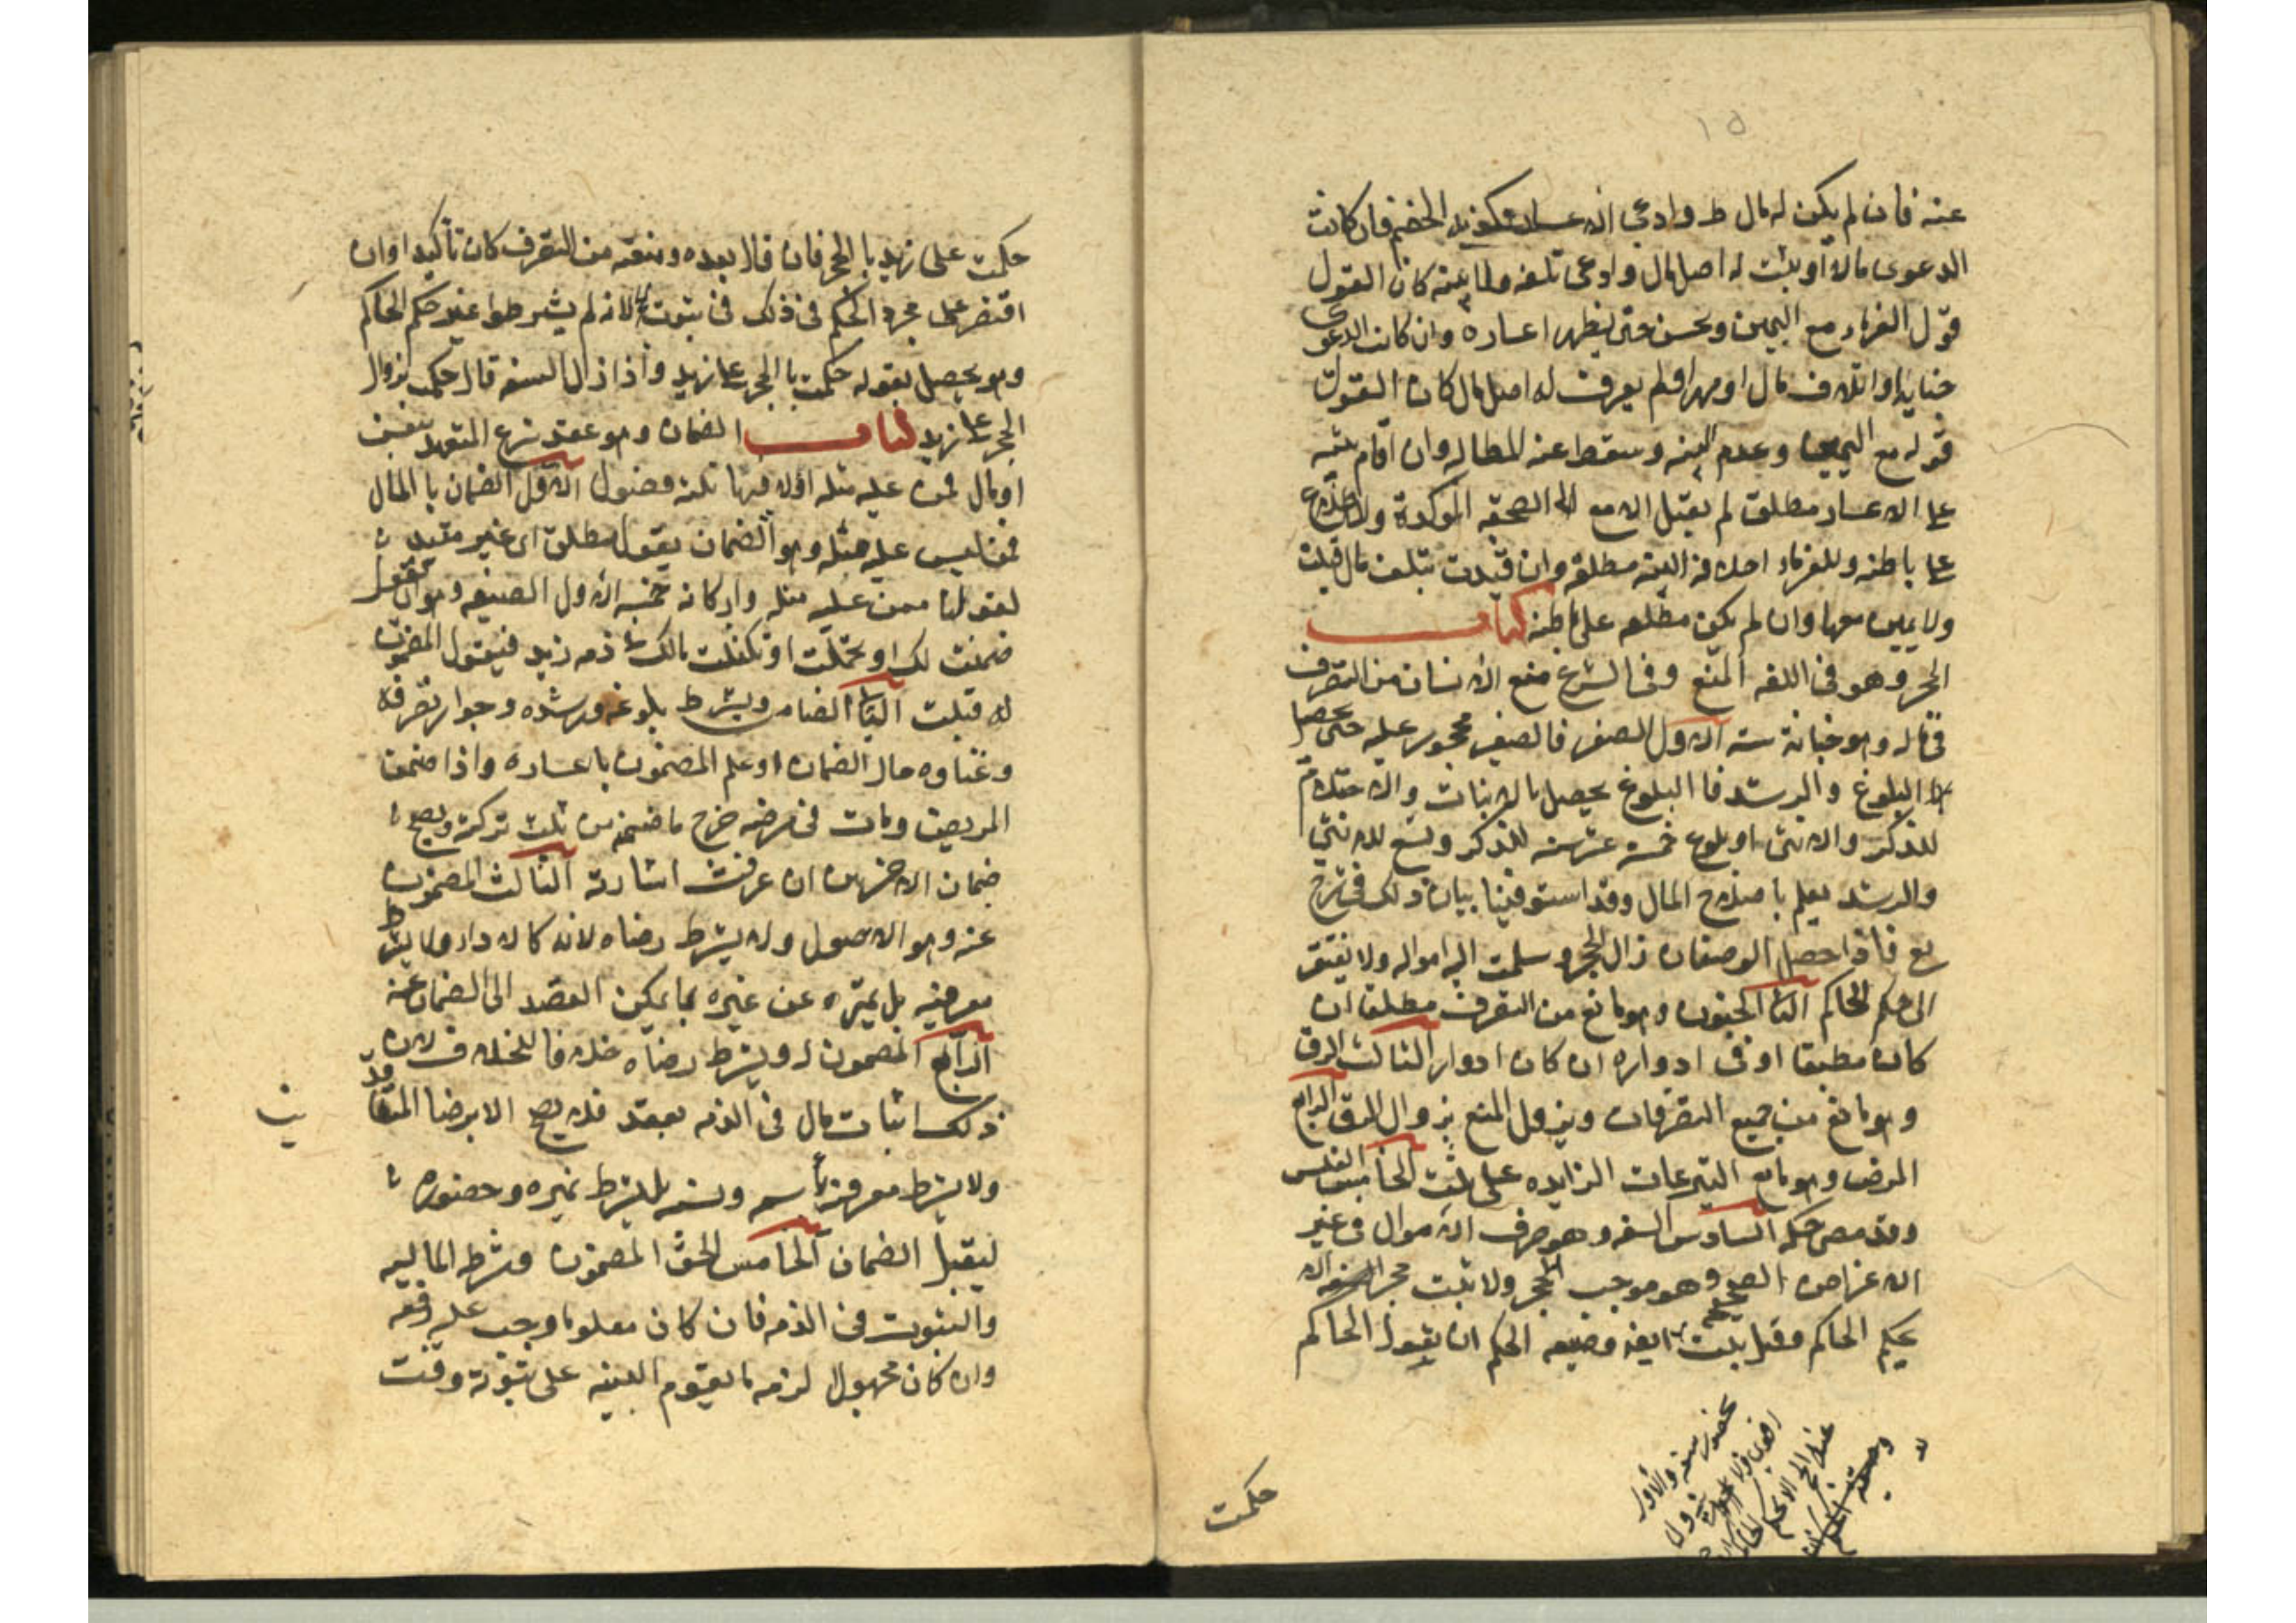 ١٥
عنه فان لم يكن له مال ظ وادعى الاعسار تكذيه الخصم فان كانت
الدعوى مالا او يثبت له اصل مال وادعى تلفه ولا بينه كان القول
قول الغرماء مع اليمين وحبس حتى يظهر اعساره وان كانت الدعوى
جنايه او اتلاف مال او مهرا ولم يعرف له اصل مال كان القول
قوله مع اليمين وعدم البينه وسقط عنه المطالبه وان اقام بينه
على الاعسار مطلقا لم يقبل الا مع الصحبة المؤكدة والاطلاع
على باطنه وللغرماء احلافه البينه مطلقه وان قيدت بتلف مال قبلت
ولا يمين معها وان لم يكن مطلعه على باطنه كتاب
الحجر وهو في اللغه المنع وفي الشرع منع الانسان من التصرف
في ماله وهو سته الاول الصغر فالصغير محجور عليه حتى يحصل
له البلوغ والرشد فالبلوغ يحصل بالانبات والاحتلام
للذكر والانثى او بلوغ خمسة عشر سنه للذكر وتسع للانثى
والرشد يعلم باصلاح المال وقد استوفينا بيان ذلك في شرح
يع فاذا حصل الوصفان زال الحجر وسلمت اليه امواله ولا يفتقر
الى حكم الحاكم الثا الجنون وهو مانع من التصرف مطلقا ان
كان مطبقا او في ادواره ان كان ادوار الثالث الرق
وهو مانع من جميع التصرفات ويزول المنع بزوال الرق الرابع
المرض وهو مانع التبرعات الزايده على ثلث الخامس الفلس
وقد مضى حكمه السادس السفه وهو صرف الاموال في غير
الاغراض الصحيحه وهو موجب الحجر ولا يثبت حجر السفه الا
بحكم الحاكم وقيل يثبت ايضا وصيغه الحكم ان يقول الحاكم
حكمت
حكمت على زيد بالحجر فان قال بعده ومنعته من التصرف كان تأكيدا وان
اقتصر على مجرد الحكم في ذلك في ثبوته لانه لم يشترطوا غير حكم الحاكم
وهو يحصل بقوله حكمت بالحجر على زيد واذا زال السفه قال حكمت بزوال
الحجر على زيد كتاب الضمان وهو عقد شرع للتعهد بنفس
او مال ممن عليه مثله اولا فيها ثلثه فصول الاول الضمان بالمال
ممن ليس عليه مثله وهو الضمان بقول مطلق اى غير مقيد
لقولنا ممن عليه مثله واركانه خمسه الاول الصيغه وهو ان يقول
ضمنت لك او تحملت او تكفلت مالك في ذمه زيد فيقول المضمون
له قبلت الثا الضامن ويشترط بلوغه ورشده وجواز تصرفه
وغناوه حال الضمان او علم المضمون باعساره واذا ضمن
المريض ومات في مرضه خرج ما ضمنه من ثلث تركته ويصح
ضمان الاخرس ان عرفت اشارته الثالث المضمون
عنه وهو الاصيل ولا يشترط رضاه لانه كالاداء ولا يشترط
معرفته بل يميزه عن غيره بما يمكن القصد الى الضمان عنه
الرابع المضمون له ويشترط رضاه خلافا للخلاف لان
ذلك اثبات مال في الذمه بعقد فلا يصح الا برضا المتعاقدين
ولا يشترط معرفته باسمه ونسبه بل يشترط تميزه وحضوره
ليقبل الضمان الخامس الحق المضمون وشرطه الماليه
والثبوت في الذمه فان كان معلوما وجب عليه دفعه
وان كان مجهولا لزمه ما يقوم البينه على ثبوته وقت